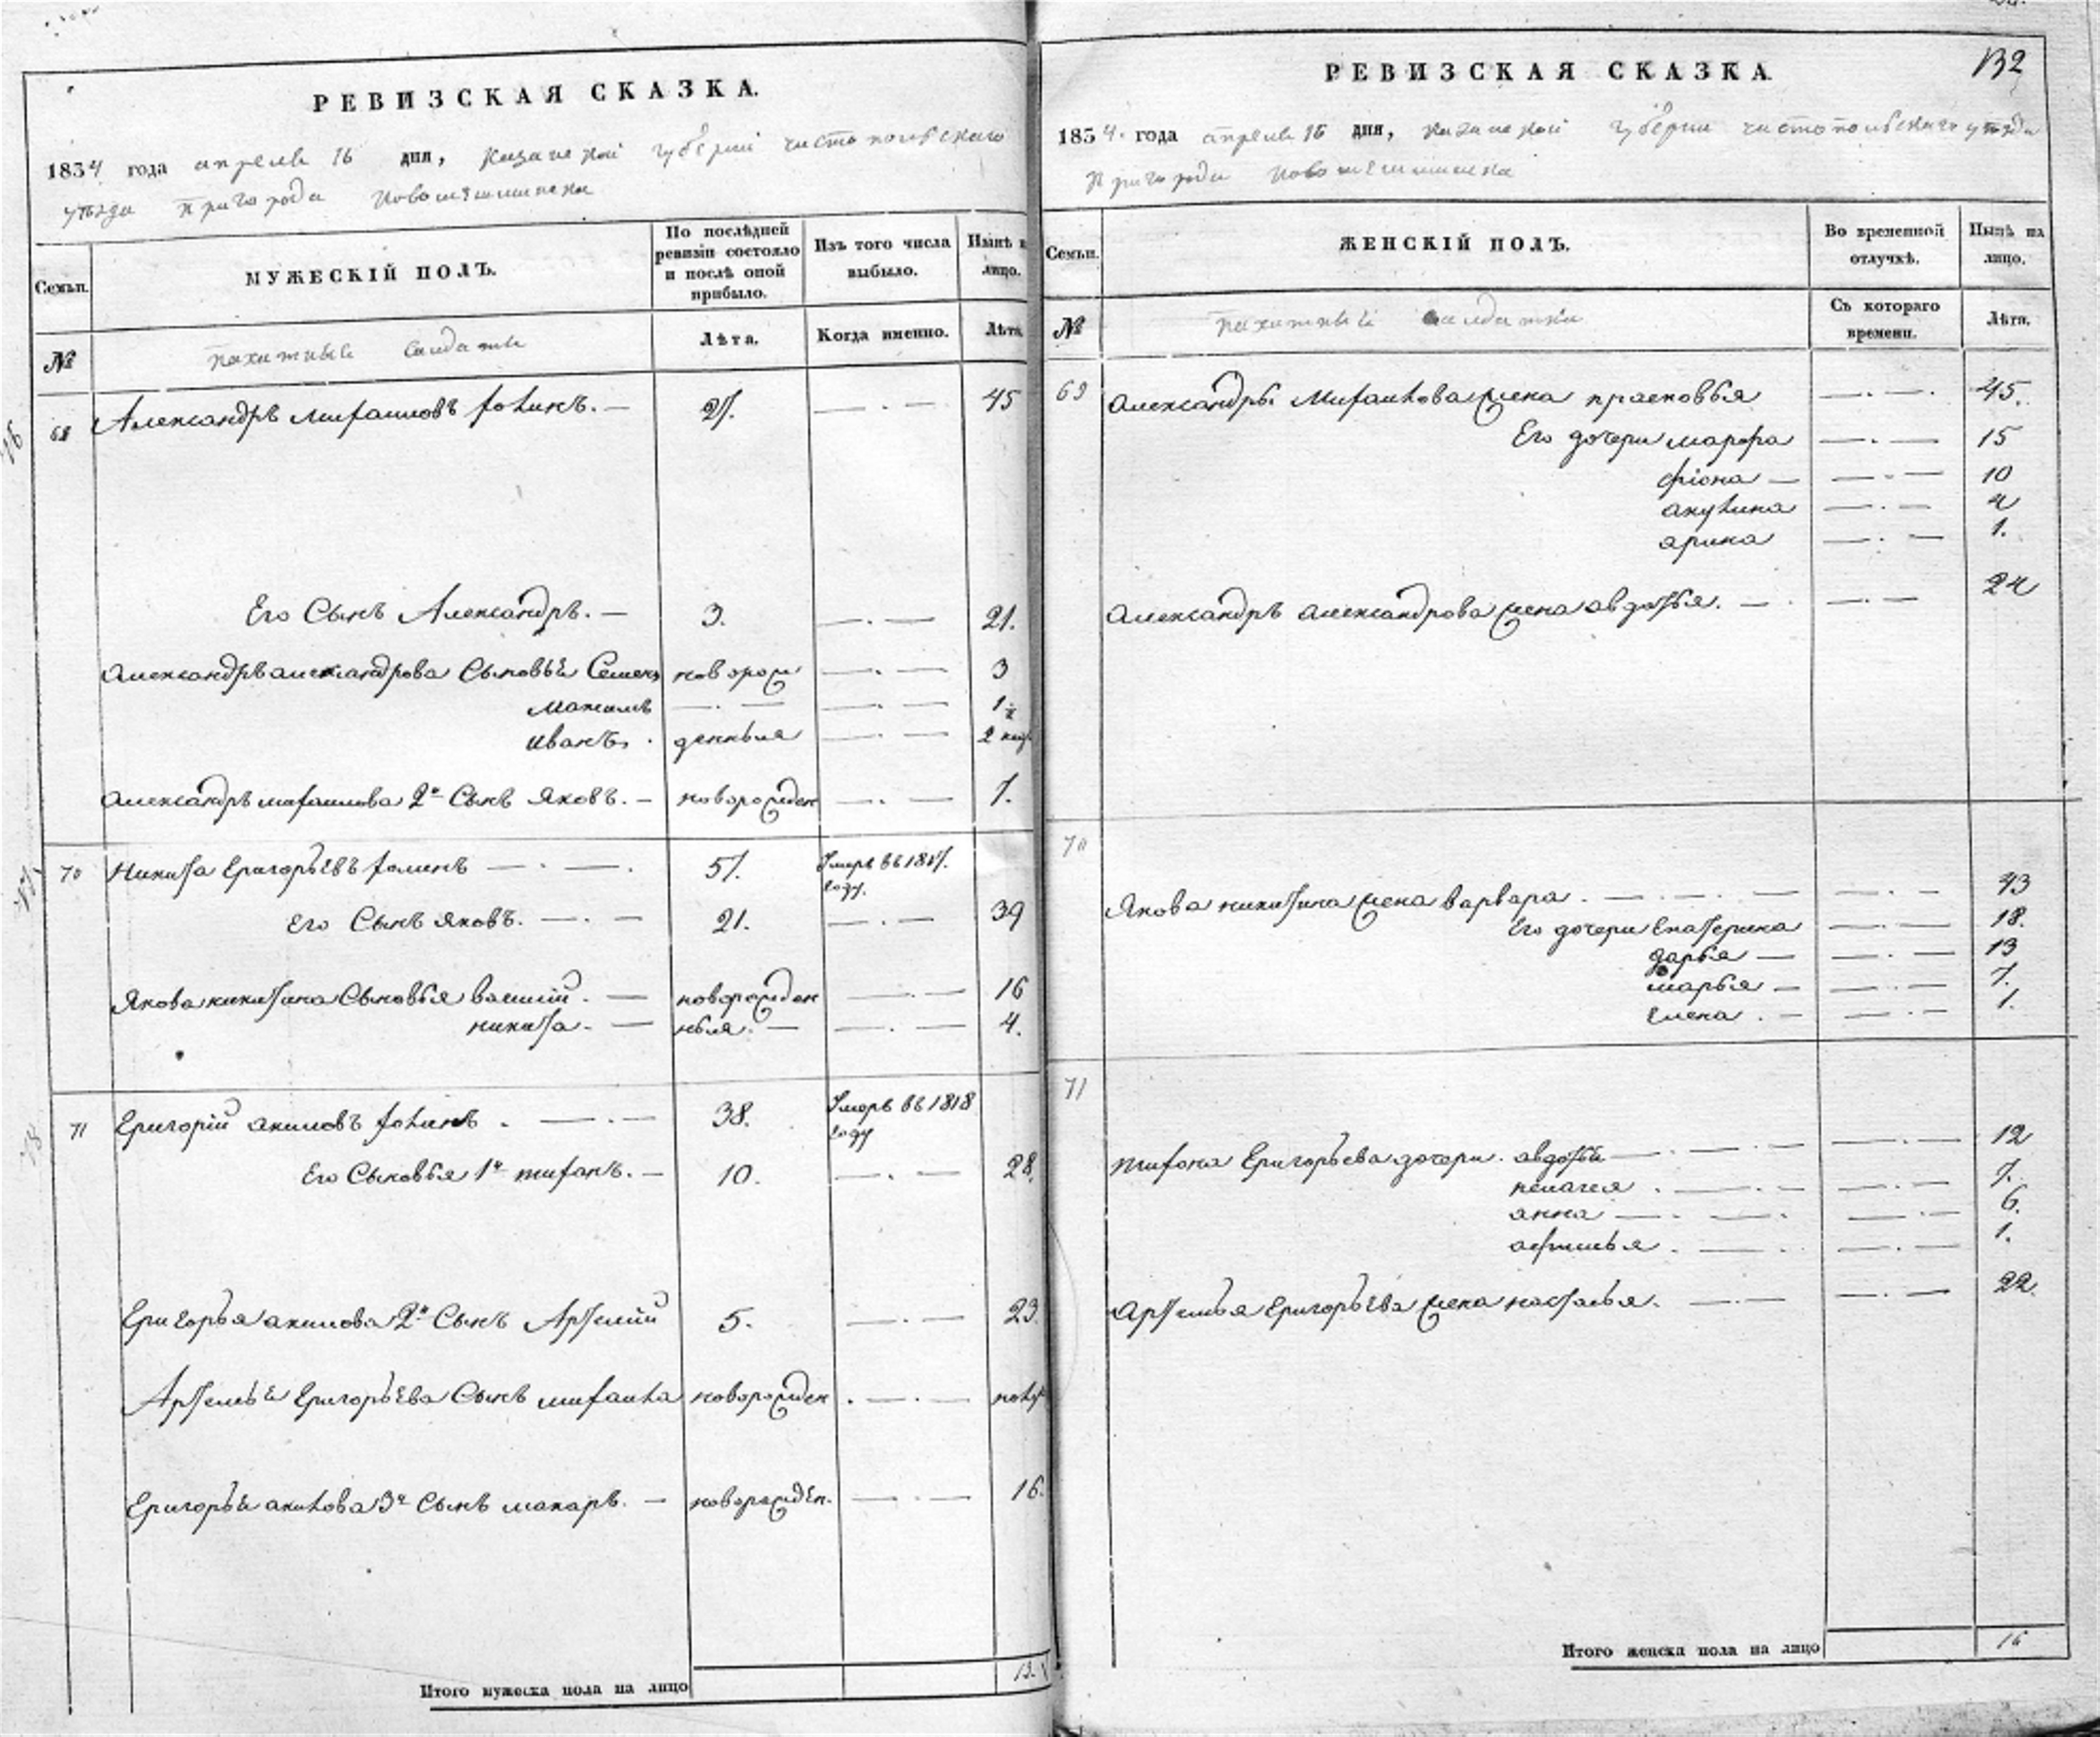 РЕВИЗСКАЯ СКАЗКА.
1834 года апреля 16 дня, казанской губернии чистопольскаго
уѣзда пригорода новошешминска
Семьи.
МУЖЕСКІЙ ПОЛЪ.
По послѣдней ревизіи состояло и послѣ оной прибыло.
Изъ того числа выбыло.
Нынѣ на лицо.
№
пахатные солдаты
Лѣта.
Когда именно.
Лѣта.
69 Александръ михаиловъ фоминъ. — 27. — . — 45
Его Сынъ Александръ. — 3. — . — 21.
Александръ александрова Сыновья Семенъ новорож — . — 3
Максимъ — . — — . — 1
иванъ. денныя — . — 2 нед
Александръ михаилова 2й Сынъ яковъ. — новорожден — . — 7.
70 Никита Григорьевъ фоминъ — . — . 57. Умеръ въ 1817. году.
его Сынъ яковъ. — . — 21. — . — 39
Якова никитина Сыновья василій. — новорожден — . — 16
никита. — ныя. — — . — 4.
71 Григорій акимовъ фоминъ . — . — 38. Умеръ въ 1818 году
Его Сыновья 1й тифонъ. — 10. — . — 28.
Григорья акимова 2й Сынъ Артемій 5. — . — 23.
Артемья Григорьева Сынъ михаила новорожден . — . —
Григорья акимова 3й Сынъ макаръ. — новорожден. — . — 16.
Итого мужеска пола на лицо 13.
132
РЕВИЗСКАЯ СКАЗКА.
1834. года апреля 16 дня, казанской губернии чистопольскаго уѣзда
пригорода новошешминска
Семьи.
ЖЕНСКІЙ ПОЛЪ.
Во временной отлучкѣ.
Нынѣ на лицо.
№
пахатныя солдатки
Съ котораго времени.
Лѣта.
69 Александры Михаилова жена прасковья — . — 45.
Его дочери марфа — . — 15
фіона — — . — 10
акулина — . — 4
арина — . — 1.
Александръ александрова жена авдотья. — . — . — 24
70
Якова никитина жена варвара . — . — . — — . — 43
Его дочери Екатерина — . — 18.
дарья — — . — 13
марья — — . — 7.
елена . — — . — 1.
71
тифона Григорьева дочери. авдотья — . — . — — . — 12
пелагея . — . — — . — 7.
анна — . — . — . — 6.
афимья . — . — . — 1.
Артемья Григорьева жена настасья. — . — — . — 22.
Итого женска пола на лицо 16